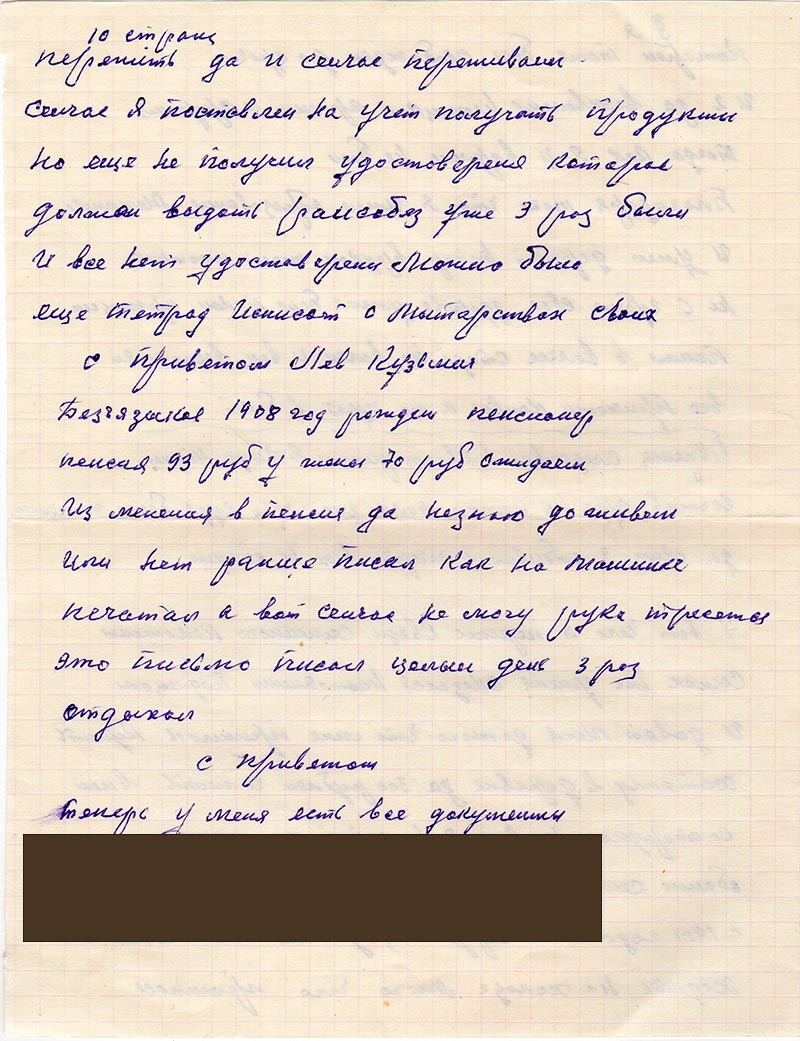 10 страниц
пережить да и сейчас переживаем
сейчас я поставлен на учет получать продукты
но еще не получил удостовереня которое
должен выдать райсобез уже 3 раз были
и все нет удостоверени можно было
еще тетрад исписат о мытарствах своих
с приветом Лев Кузьмич
Безъязыков 1908 год рожден пенсионер
пенсия 93 руб у жены 70 руб ожидаем
Из менения в пенсия да незнаю доживем
или нет раньше писал как на машинке
печатал а вот сейчас не могу рука трясется
это письмо писал целый день 3 раз
отдыхал
с приветом
теперь у меня есть все документы